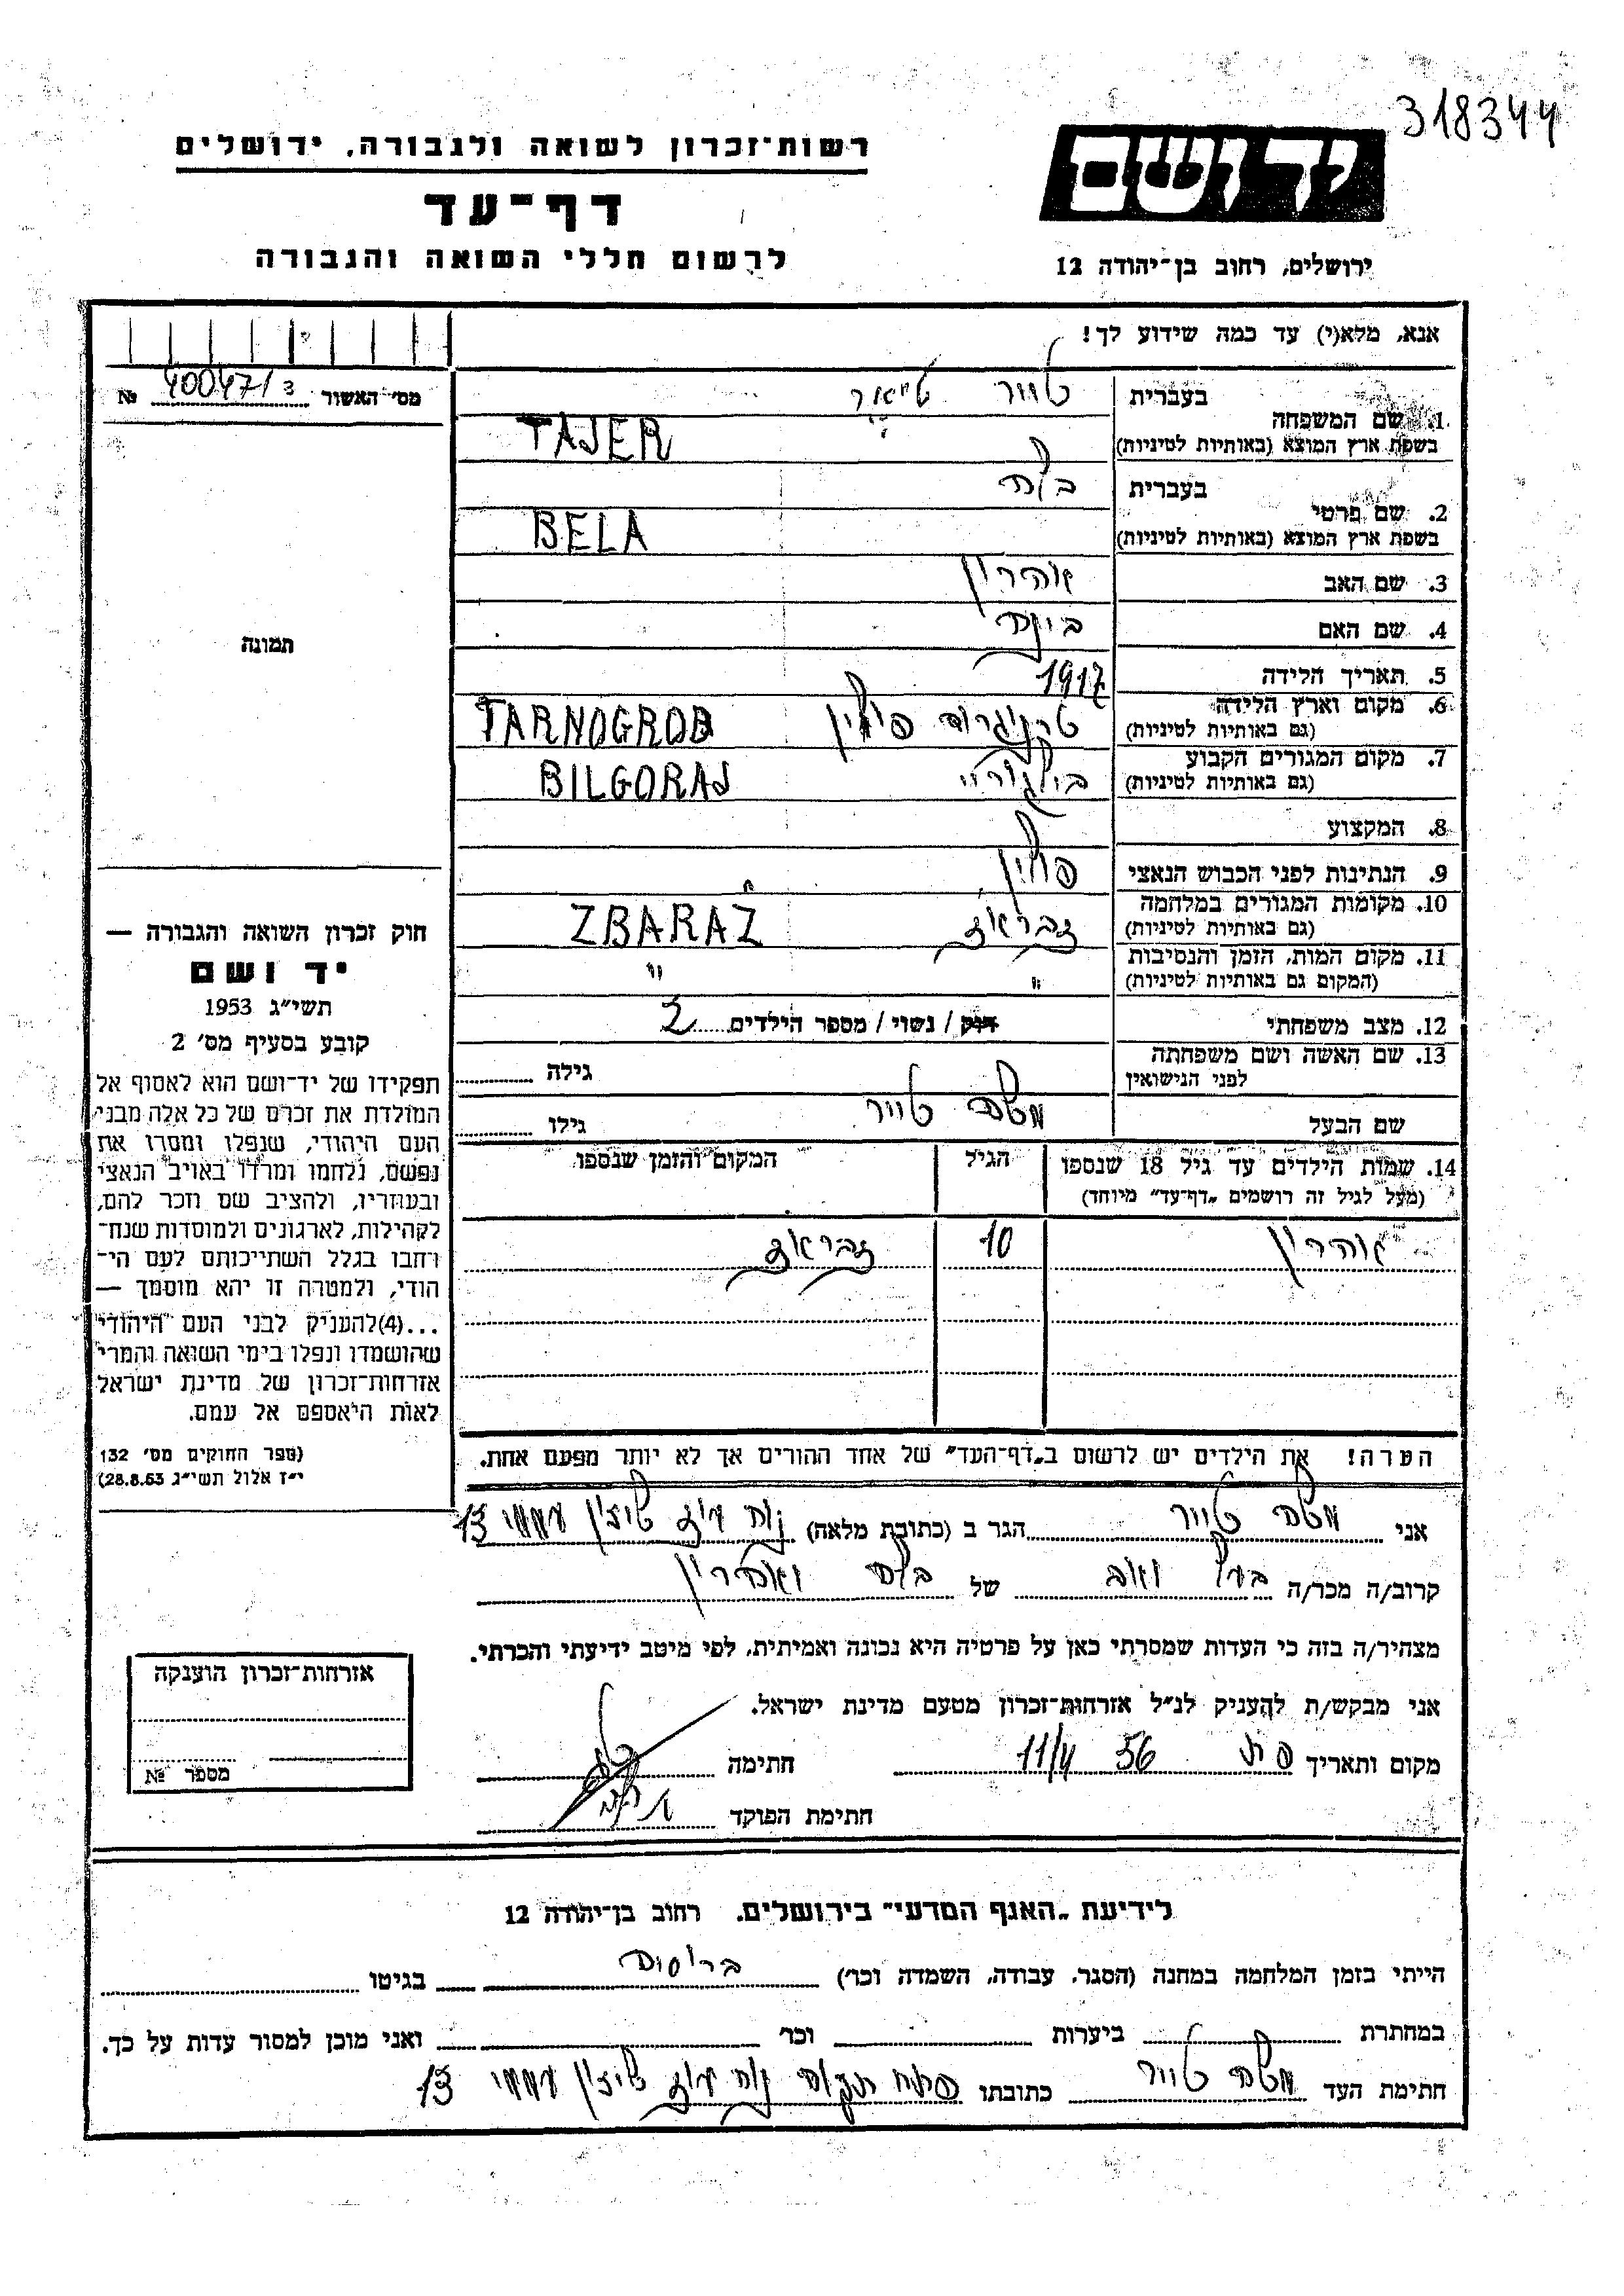 318344
רשות־זכרון לשואה ולגבורה, ירושלים
יד ושם
דף־עד
ירושלים, רחוב בן־יהודה 12
לרשום חללי השואה והגבורה
אנא, מלא(י) עד כמה שידוע לך!
מס׳ האשור 40047/3 №
1. שם המשפחה בעברית טייר טייאר
בשפת ארץ המוצא (באותיות לטיניות) TAJER
2. שם פרטי בעברית בלה
בשפת ארץ המוצא (באותיות לטיניות) BELA
3. שם האב אהרון
4. שם האם
תמונה
5. תאריך הלידה 1917
6. מקום וארץ הלידה
(גם באותיות לטיניות) טרניגרוב פולין TARNOGROB
7. מקום המגורים הקבוע
(גם באותיות לטיניות) בילגוריי BILGORAJ
8. המקצוע
9. הנתינות לפני הכבוש הנאצי פולין
10. מקומות המגורים במלחמה
(גם באותיות לטיניות) זבראז ZBARAZ
11. מקום המות, הזמן והנסיבות
(המקום גם באותיות לטיניות) " "
12. מצב משפחתי רווק / נשוי / מספר הילדים 2
13. שם האשה ושם משפחתה
לפני הנישואין גילה
שם הבעל משה טייר גילו
14. שמות הילדים עד גיל 18 שנספו הגיל המקום והזמן שנספו
(מעל לגיל זה רושמים „דף־עד״ מיוחד)
אהרון 10 זבראז
חוק זכרון השואה והגבורה —
יד ושם
תשי״ג 1953
קובע בסעיף מס׳ 2
תפקידו של יד־ושם הוא לאסוף אל
המולדת את זכרם של כל אלה מבני
העם היהודי, שנפלו ומסרו את
נפשם, נלחמו ומרדו באויב הנאצי
ובעוזריו, ולהציב שם וזכר להם,
לקהילות, לארגונים ולמוסדות שנח־
רחבו בגלל השתייכותם לעם הי־
הודי, ולמטרה זו יהא מוסמך —
...(4)להעניק לבני העם היהודי
שהושמדו ונפלו בימי השואה והמרי
אזרחות־זכרון של מדינת ישראל
לאות היאספם אל עמם.
(ספר החוקים מס׳ 132
י״ז אלול תשי״ג 28.8.53)
הערה! את הילדים יש לרשום ב„דף־העד״ של אחד ההורים אך לא יותר מפעם אחת.
אני משה טייר הגר ב (כתובת מלאה) נוה עוז שיכון עממי 13
קרוב/ה מכר/ה בעל ואב של בלה ואהרון
מצהיר/ה בזה כי העדות שמסרתי כאן על פרטיה היא נכונה ואמיתית, לפי מיטב ידיעתי והכרתי.
אני מבקש/ת להעניק לנ״ל אזרחות־זכרון מטעם מדינת ישראל.
מקום ותאריך פ ת 11/4 56 חתימה
חתימת הפוקד
אזרחות־זכרון הוענקה
מספר №
לידיעת „האגף המדעי״ בירושלים, רחוב בן־יהודה 12
הייתי בזמן המלחמה במחנה (הסגר, עבודה, השמדה וכו׳) ברוסיה בגיטו
במחתרת ביערות וכו׳ ואני מוכן למסור עדות על כך.
חתימת העד משה טייר כתובתו פתח תקוה נוה עוז שיכון עממי 13